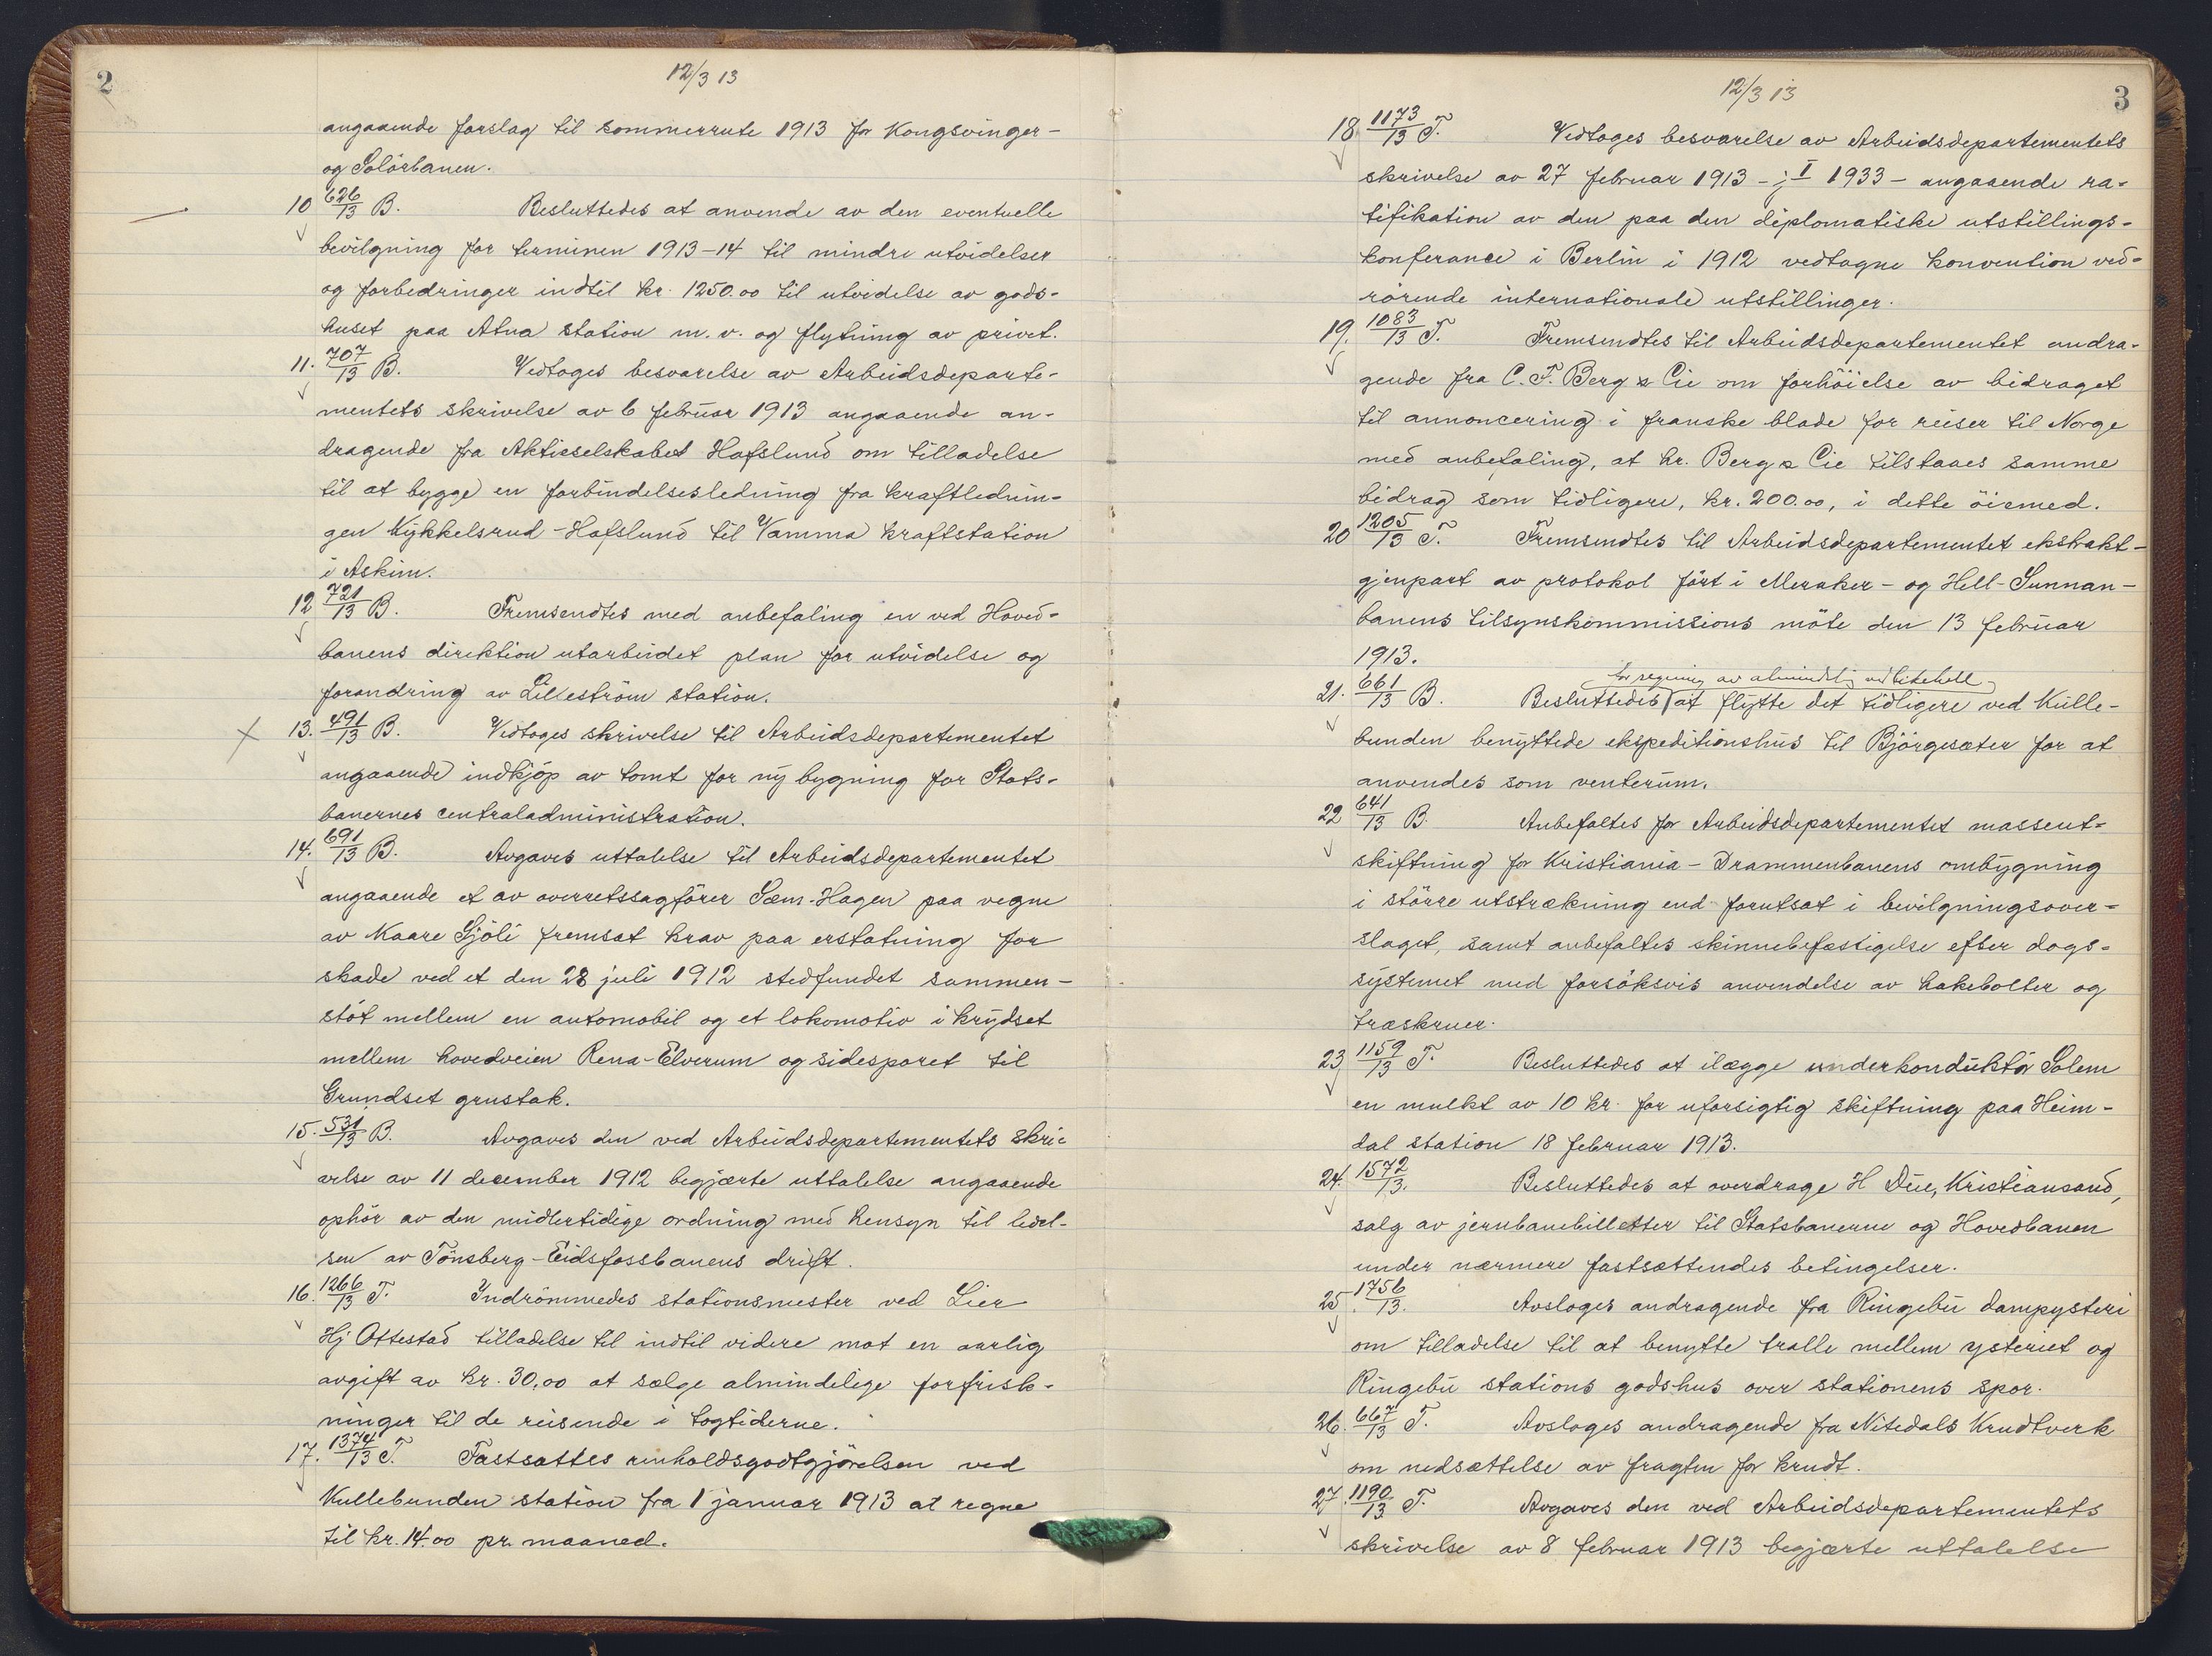 2
12/3 13
angaaende forslag til sommerrute 1913 for Kongsvinger-
og Solörbanen.
10 626/13 B. Besluttedes at anvende av den eventuelle
bevilgning for terminen 1913-14 til mindre utvidelser
og forbedringer indtil kr. 1250.00 til utvidelse av gods-
huset paa Atna station m.v. og flytning av privet.
11. 707/13 B. Vedtoges besvarelse av Arbeidsdeparte-
mentets skrivelse av 6 februar 1913 angaaende an-
dragende fra Aktieselskabet Hafslund om tilladelse
til at bygge en forbindelsesledning fra kraftlednin-
gen Kykkelsrud-Hafslund til Vamma kraftstation
i Askim.
12 721/13 B. Fremsendtes med anbefaling en ved Hoved-
banens direktion utarbeidet plan for utvidelse og
forandring av Lilleström station.
13. 491/13 B. Vedtoges skrivelse til Arbeidsdepartementet
angaaende indkjöp av tomt for ny bygning for Stats-
banernes centraladministration.
14. 691/13 B. Avgaves uttalelse til Arbeidsdepartementet
angaaende et av overretssagförer Sæm-Hagen paa vegne
av Kaare Sjöli fremsat krav paa erstatning for
skade ved et den 28 juli 1912 stedfundet sammen-
stöt mellem en automobil og et lokomotiv i krydset
mellem hovedveien Rena-Elverum og sidesporet til
Grundset grustak.
15. 531/13 B. Avgaves den ved Arbeidsdepartementets skri-
velse av 11 december 1912 begjærte uttalelse angaaende
ophör av den midlertidige ordning med hensyn til ledel-
sen av Tönsberg-Eidsfossbanens drift.
16. 1266/13 T. Indrömmedes stationsmester ved Lier
Hj Ottestad tilladelse til indtil videre mot en aarlig
avgift av kr. 30,00 at sælge almindelige forfrisk-
ninger til de reisende i togtiderne.
17. 1374/13 T. Fastsattes renholdsgodtgjörelsen ved
Kullebunden station fra 1 januar 1913 at regne
til kr. 14.00 pr. maaned.
12/3 13
3
18. 1173/13 T. Vedtoges besvarelse av Arbeidsdepartementets
skrivelse av 27 februar 1913 - j I 1933 - angaaende ra-
tifikation av den paa den diplomatiske utstillings-
konferance i Berlin i 1912 vedtagne konvention ved-
rörende internationale utstillinger.
19. 1083/13 T. Fremsendtes til Arbeidsdepartementet andra-
gende fra C. F. Berg & Cie om forhöielse av bidraget
til annoncering i franske blade for reiser til Norge
med anbefaling, at hr. Berg & Cie tilstaaes samme
bidrag som tidligere, kr. 200.00, i dette öiemed.
20 1205/13 T. Fremsendtes til Arbeidsdepartementet ekstrakt-
gjenpart av protokol fört i Meraker- og Hell-Sunnan-
banens tilsynskommissions möte den 13 februar
1913.
for regning av almindelig vedlikehold
21. 661/13 B. Besluttedes at flytte det tidligere ved Kulle-
bunden benyttede ekspeditionshus til Bjørgesæter for at
anvendes som venterum.
22 641/13 B. Anbefaltes for Arbeidsdepartementet masseut-
skiftning for Kristiania-Drammenbanens ombygning
i större utstrækning end forutsat i bevilgningsover-
slaget, samt anbefaltes skinnebefæstigelse efter dogs-
systemet med forsöksvis anvendelse av hakebolter og
træskruer.
23 1159/13 T. Besluttedes at ilægge underkonduktör Solem
en mulkt av 10 kr. for uforsigtig skiftning paa Heim-
dal station 18 februar 1913.
24. 1572/13. Besluttedes at overdrage H Due, Kristiansand,
salg av jernbanebilletter til Statsbanerne og Hovedbanen
under nærmere fastsættendes betingelser.
25 1756/13. Avsloges andragende fra Ringebu dampysteri
om tilladelse til at benytte tralle mellem ysteriet og
Ringebu stations godshus over stationens spor.
26. 667/13 T. Avsloges andragende fra Nitedals Krudtverk
om nedsættelse av fragten for krudt.
27. 1190/13 T. Avgaves den ved Arbeidsdepartementets
skrivelse av 8 februar 1913 begjærte uttalelse